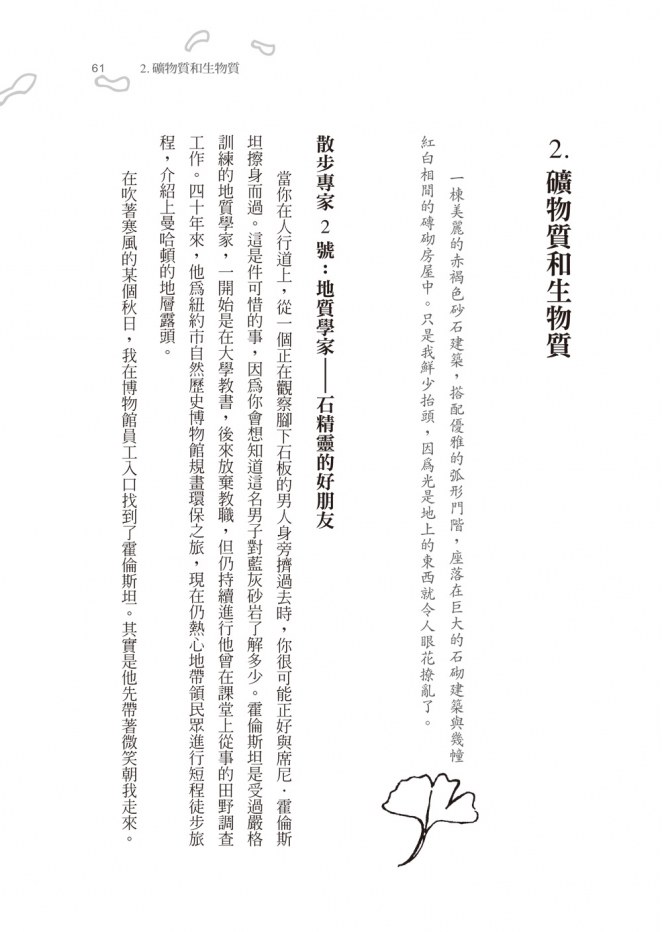 61
2. 礦物質和生物質
2. 礦物質和生物質
一棟美麗的赤褐色砂石建築，搭配優雅的弧形門階，座落在巨大的石砌建築與幾幢
紅白相間的磚砌房屋中。只是我鮮少抬頭，因為光是地上的東西就令人眼花撩亂了。
散步專家 2 號：地質學家——石精靈的好朋友
當你在人行道上，從一個正在觀察腳下石板的男人身旁擠過去時，你很可能正好與席尼．霍倫斯
坦擦身而過。這是件可惜的事，因為你會想知道這名男子對藍灰砂岩了解多少。霍倫斯坦是受過嚴格
訓練的地質學家，一開始是在大學教書，後來放棄教職，但仍持續進行他曾在課堂上從事的田野調查
工作。四十年來，他為紐約市自然歷史博物館規畫環保之旅，現在仍熱心地帶領民眾進行短程徒步旅
程，介紹上曼哈頓的地層露頭。
在吹著寒風的某個秋日，我在博物館員工入口找到了霍倫斯坦。其實是他先帶著微笑朝我走來。